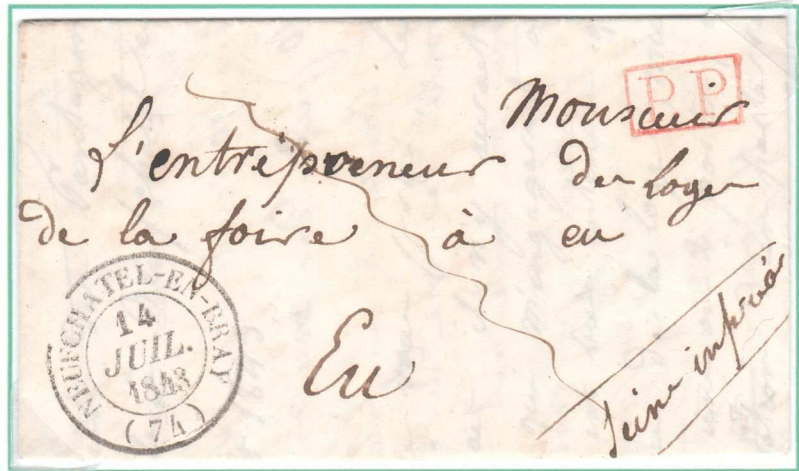 P.P.
Monsieur
L'entrepreneur des Loges
de la foire à eu
Eu
Seine infre
NEUFCHATEL-EN-BRAY
14
JUIL.
1843
(74)